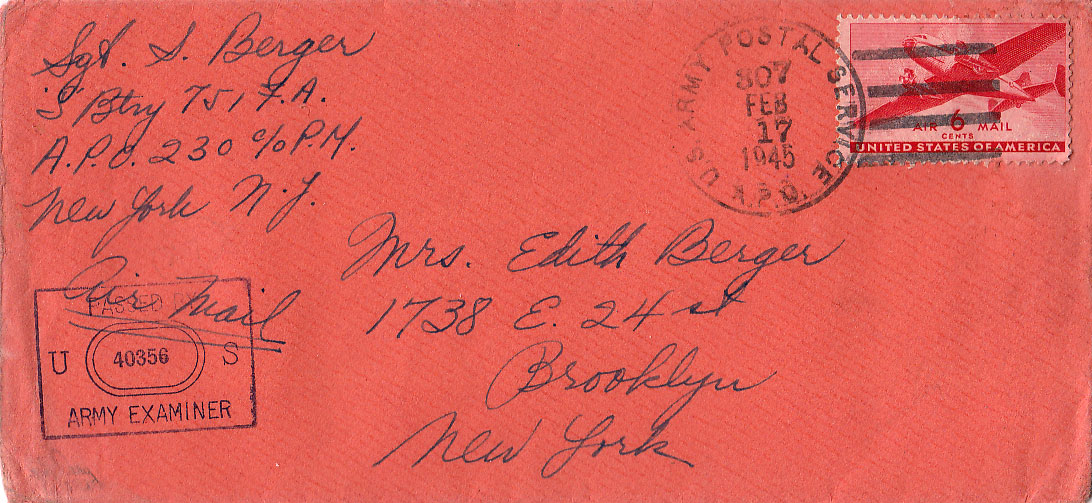 Sgt. S. Berger
'S' Btry 751 F.A.
A.P.O. 230 c/o P.M.
New York N.Y.
Air Mail
PASSED
U 40356 S
ARMY EXAMINER
U.S. ARMY POSTAL SERVICE
307
FEB
17
1945
A.P.O.
AIR 6 MAIL
CENTS
UNITED STATES OF AMERICA
Mrs. Edith Berger
1738 E. 24 st
Brooklyn
New York